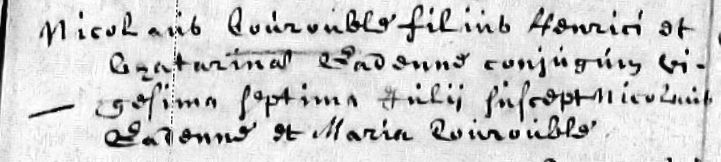 Nicolaus Couroublé filius Henrici et
Catarinæ Cadenne conjugum vi-
gesima septima Julij suscept Nicolaus
Cadenne et Maria Couroublé